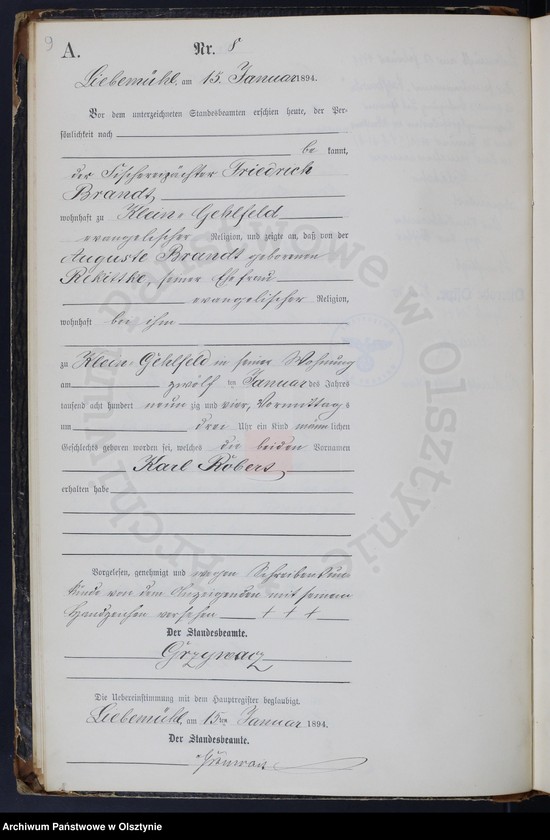 9
A.
Nr. 8
Liebemühl, am 15. Januar 1894.
Vor dem unterzeichneten Standesbeamten erschien heute, der Per-
sönlichkeit nach
be kannt,
der Fischereipächter Friedrich
Brandt,
wohnhaft zu Klein Gehlfeld
evangelischer Religion, und zeigte an, daß von der
Auguste Brandt geborenen
Rekittke, seiner Ehefrau
evangelischer Religion,
wohnhaft bei ihm
zu Klein Gehlfeld in seiner Wohnung
am zwölf ten Januar des Jahres
tausend acht hundert neun zig und vier, Vormittag s
um drei Uhr ein Kind männ lichen
Geschlechts geboren worden sei, welches die beiden Vornamen
Karl Robert
erhalten habe
Vorgelesen, genehmigt und wegen Schreibensun-
kunde von dem Anzeigenden mit seinem
Handzeichen versehen + + +
Der Standesbeamte.
Grzywacz
Die Uebereinstimmung mit dem Hauptregister beglaubigt.
Liebemühl, am 15ten Januar 1894.
Der Standesbeamte.
Archiwum Państwowe w Olsztynie
Archiwum Państwowe w Olsztynie